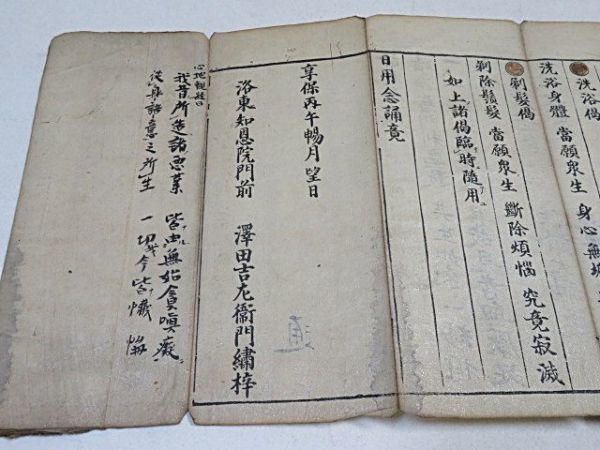 洗浴偈
洗浴身體 當願衆生 身心無垢
剃髮偈
剃除鬚髮 當願衆生 斷除煩惱 究竟寂滅
如上諸偈臨時隨用
日用念誦竟
享保丙午暢月望日
洛東知恩院門前 澤田吉左衞門繡梓
通
心地觀經曰
我昔所造諸悪業 皆由無始貪嗔癡
從身語意之所生 一切今皆懺悔